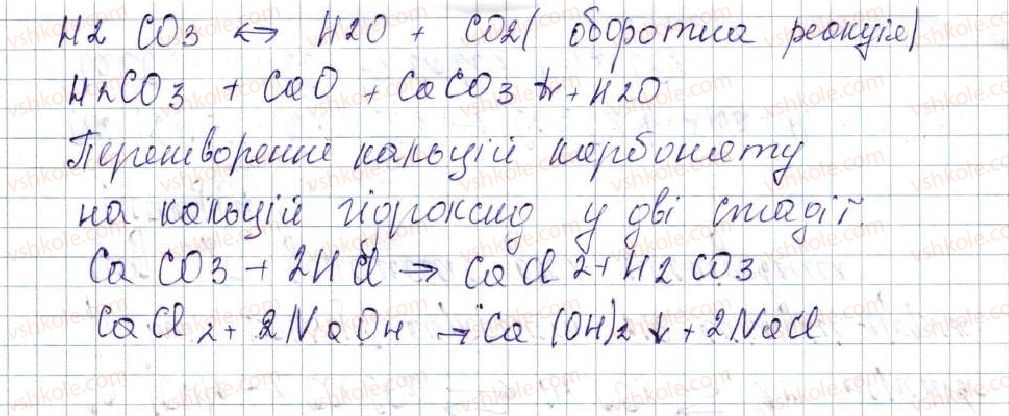 H2 CO3 ↔ H2O + CO2( оборотна реакція)
H2CO3 + CaO + CaCO3 ↓ + H2O
Перетворення кальцій карбонату
на кальцій гідроксид у дві стадії
Ca CO3 + 2HCl → CaCl2 + H2 CO3
CaCl2 + 2NaOH → Ca (OH)2 ↓ + 2NaCl